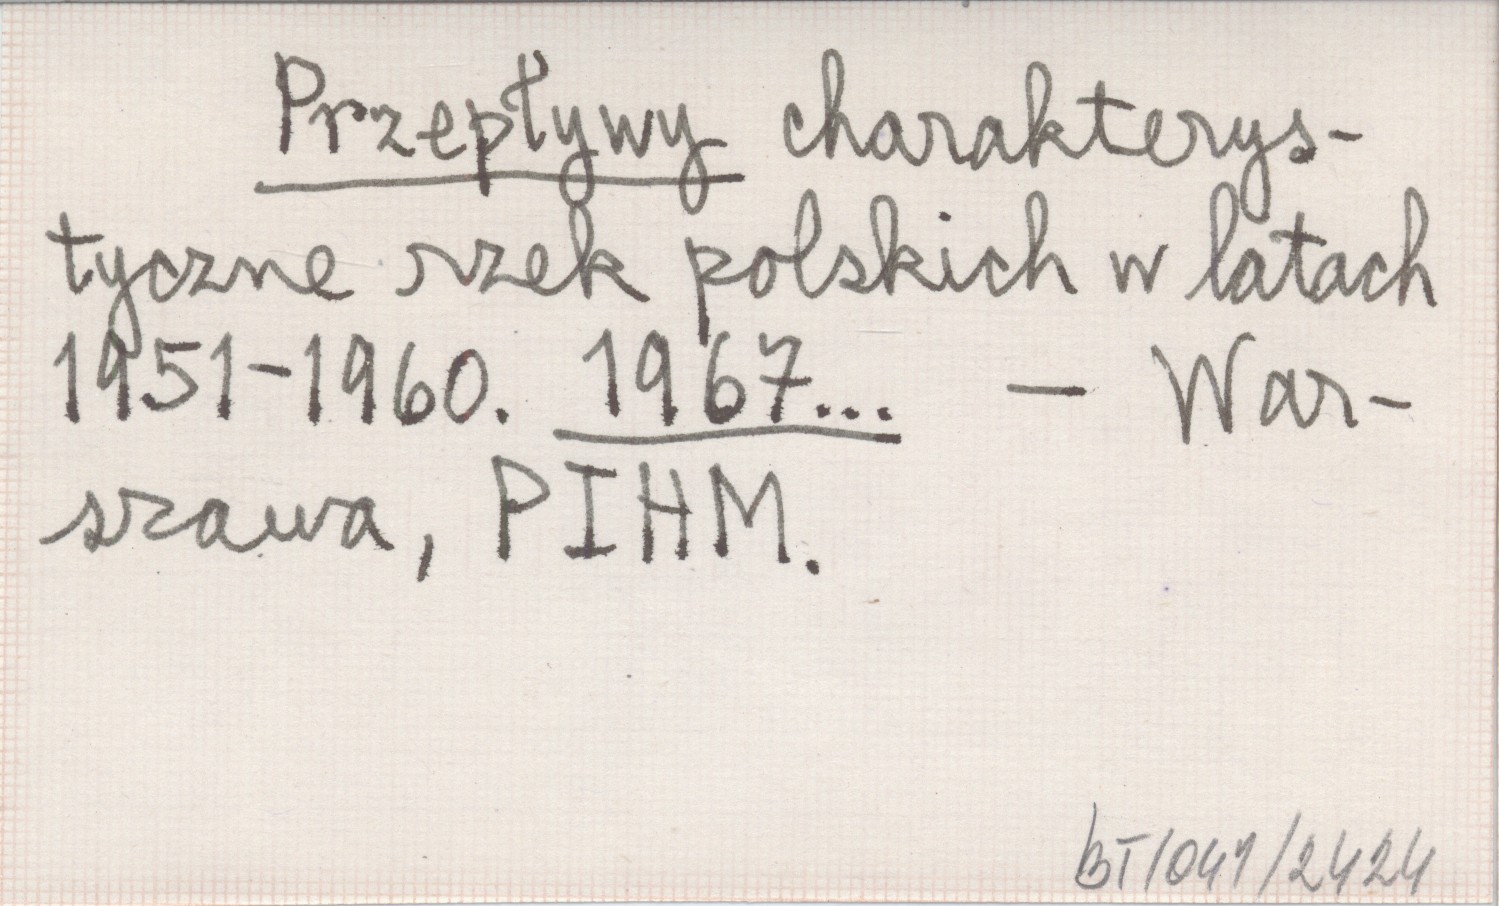 Przepływy charakterys-
tyczne rzek polskich w latach
1951-1960. 1967... — War-
szawa, PIHM.
BT/041/2424